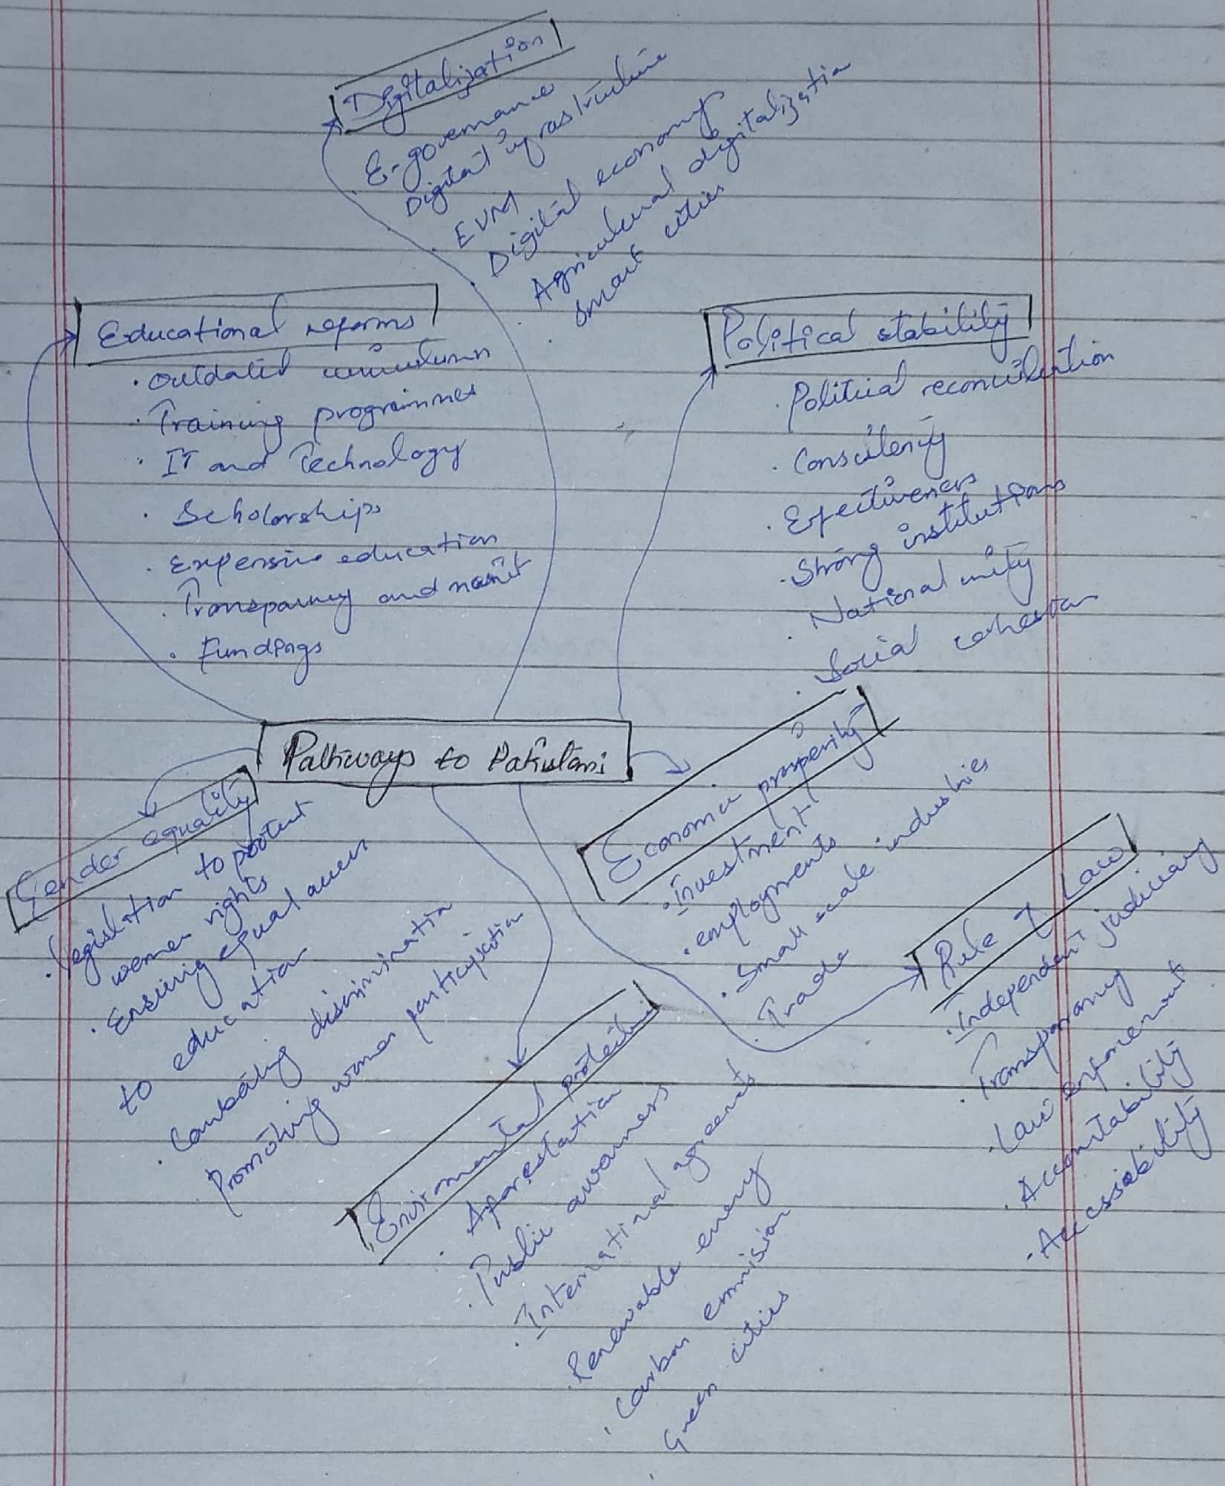 Digitalization
E-governance
Digital infrastructure
EVM
Digital economy
Agricultural digitalization
Smart cities
Educational reforms
Outdated curriculumn
Training programmes
IT and Technology
Scholorships
Expensive education
Transparency and merit
Fundings
Political stability
Political reconciliation
Consistency
Effectiveness
Strong institutions
National unity
Social cohesion
Pathways to Pakistani
Gender equality
Legislation to protect
women rights
Ensuring equal access
to education
Combating discrimination
Promoting women participation
Economic prosperity
Investment
employments
Small scale industries
Trade
Rule of Law
Independent judiciary
Transparency
Law enforcement
Accountability
Accessibility
Enviromental protection
Aforestation
Public awareness
International agreements
Renewable energy
Carbon emmision
Green cities